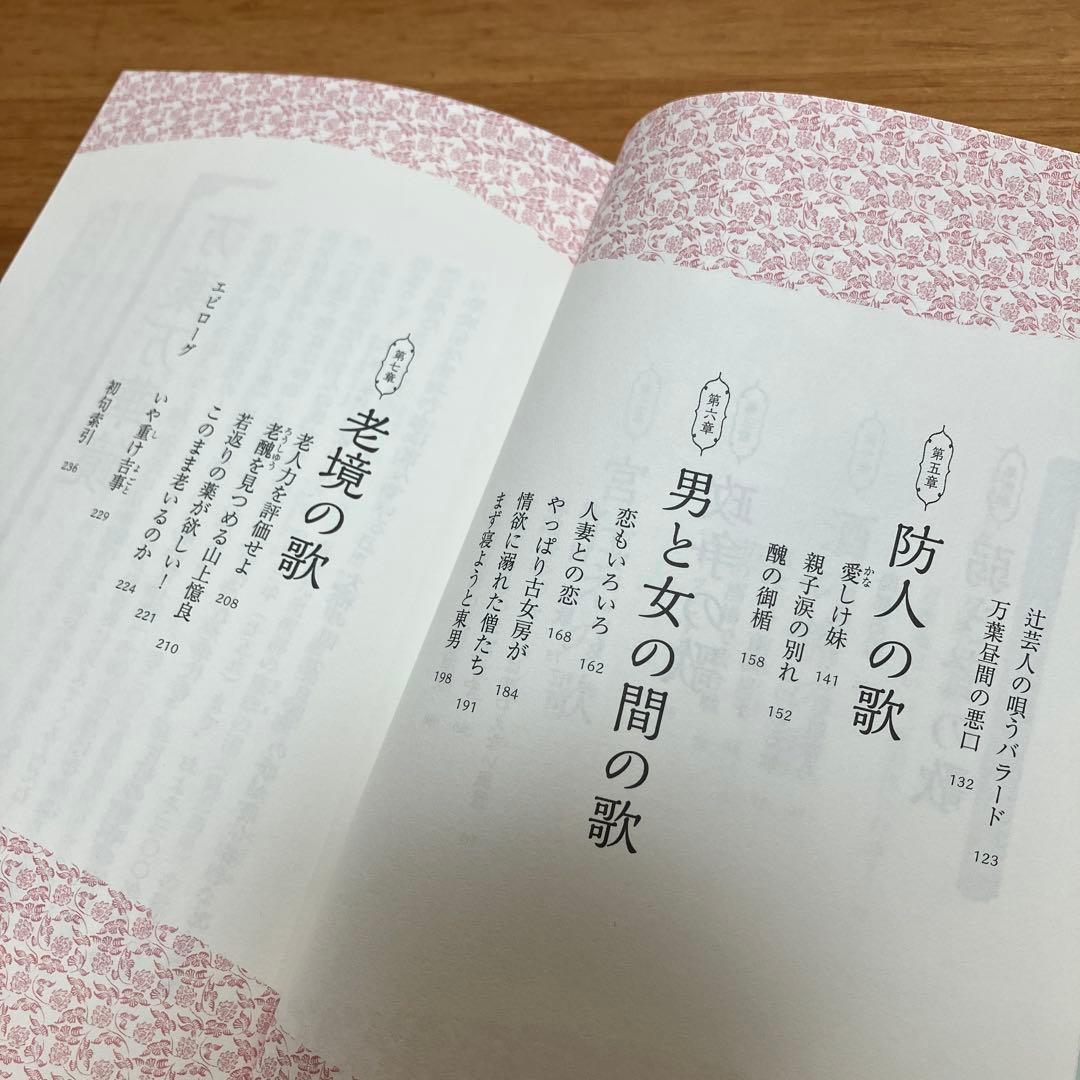 辻芸人の唄うバラード 123
万葉昼間の悪口 132
第五章
防人の歌
愛しけ妹 141
かな
親子涙の別れ 152
醜の御楯 158
第六章
男と女の間の歌
恋もいろいろ 162
人妻との恋 168
やっぱり古女房が 184
情欲に溺れた僧たち 191
まず寝ようと東男 198
第七章
老境の歌
老人力を評価せよ 208
老醜を見つめる山上憶良 210
ろうしゅう
若返りの薬が欲しい! 221
このまま老いるのか 224
エピローグ
いや重け吉事 229
し よごと
初句索引 236